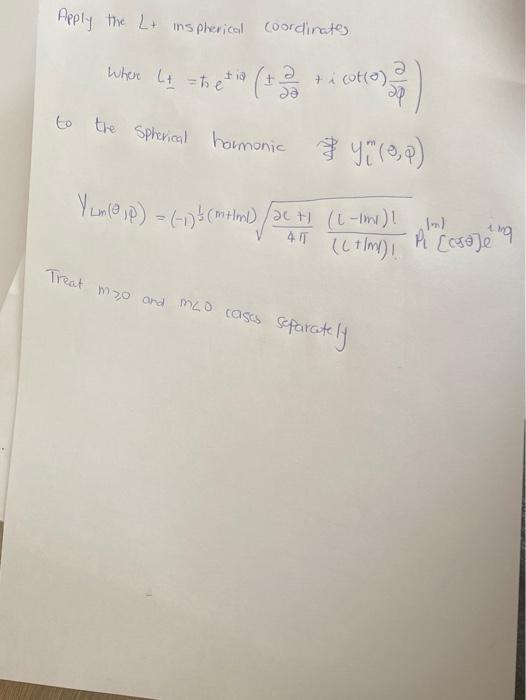 Apply the L+ in spherical coordinates
When L± = ħ e^{±iφ} (± ∂/∂θ + i cot(θ) ∂/∂φ)
to the Spherical harmonic Y_l^m(θ,φ)
Y_{Lm}(θ,φ) = (-1)^{½(m+|m|)} √(2l+1/4π (l-|m|)!/(l+|m|)!) P_l^{|m|}[cosθ]e^{imφ}
Treat m≥0 and m<0 cases separately